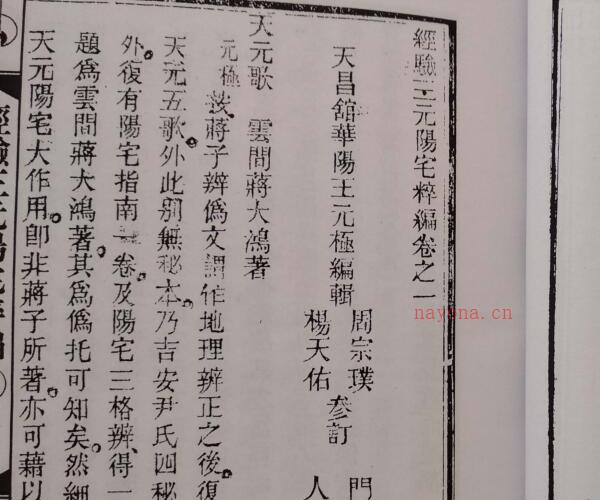 經驗三元陽宅粹編卷之一
天昌舘華陽王元極編輯
周宗璞
楊天佑
參訂
門
人
天元歌 雲間蔣大鴻著
元極 按蔣子辨僞文謂作地理辨正之後復
天元五歌外此別無秘本乃吉安尹氏四秘
外復有陽宅指南一卷及陽宅三格辨得一
題爲雲間蔣大鴻著其爲僞托可知矣然細
天元陽宅大作用卽非蔣子所著亦可藉以
經驗三元陽宅
nayona.cn